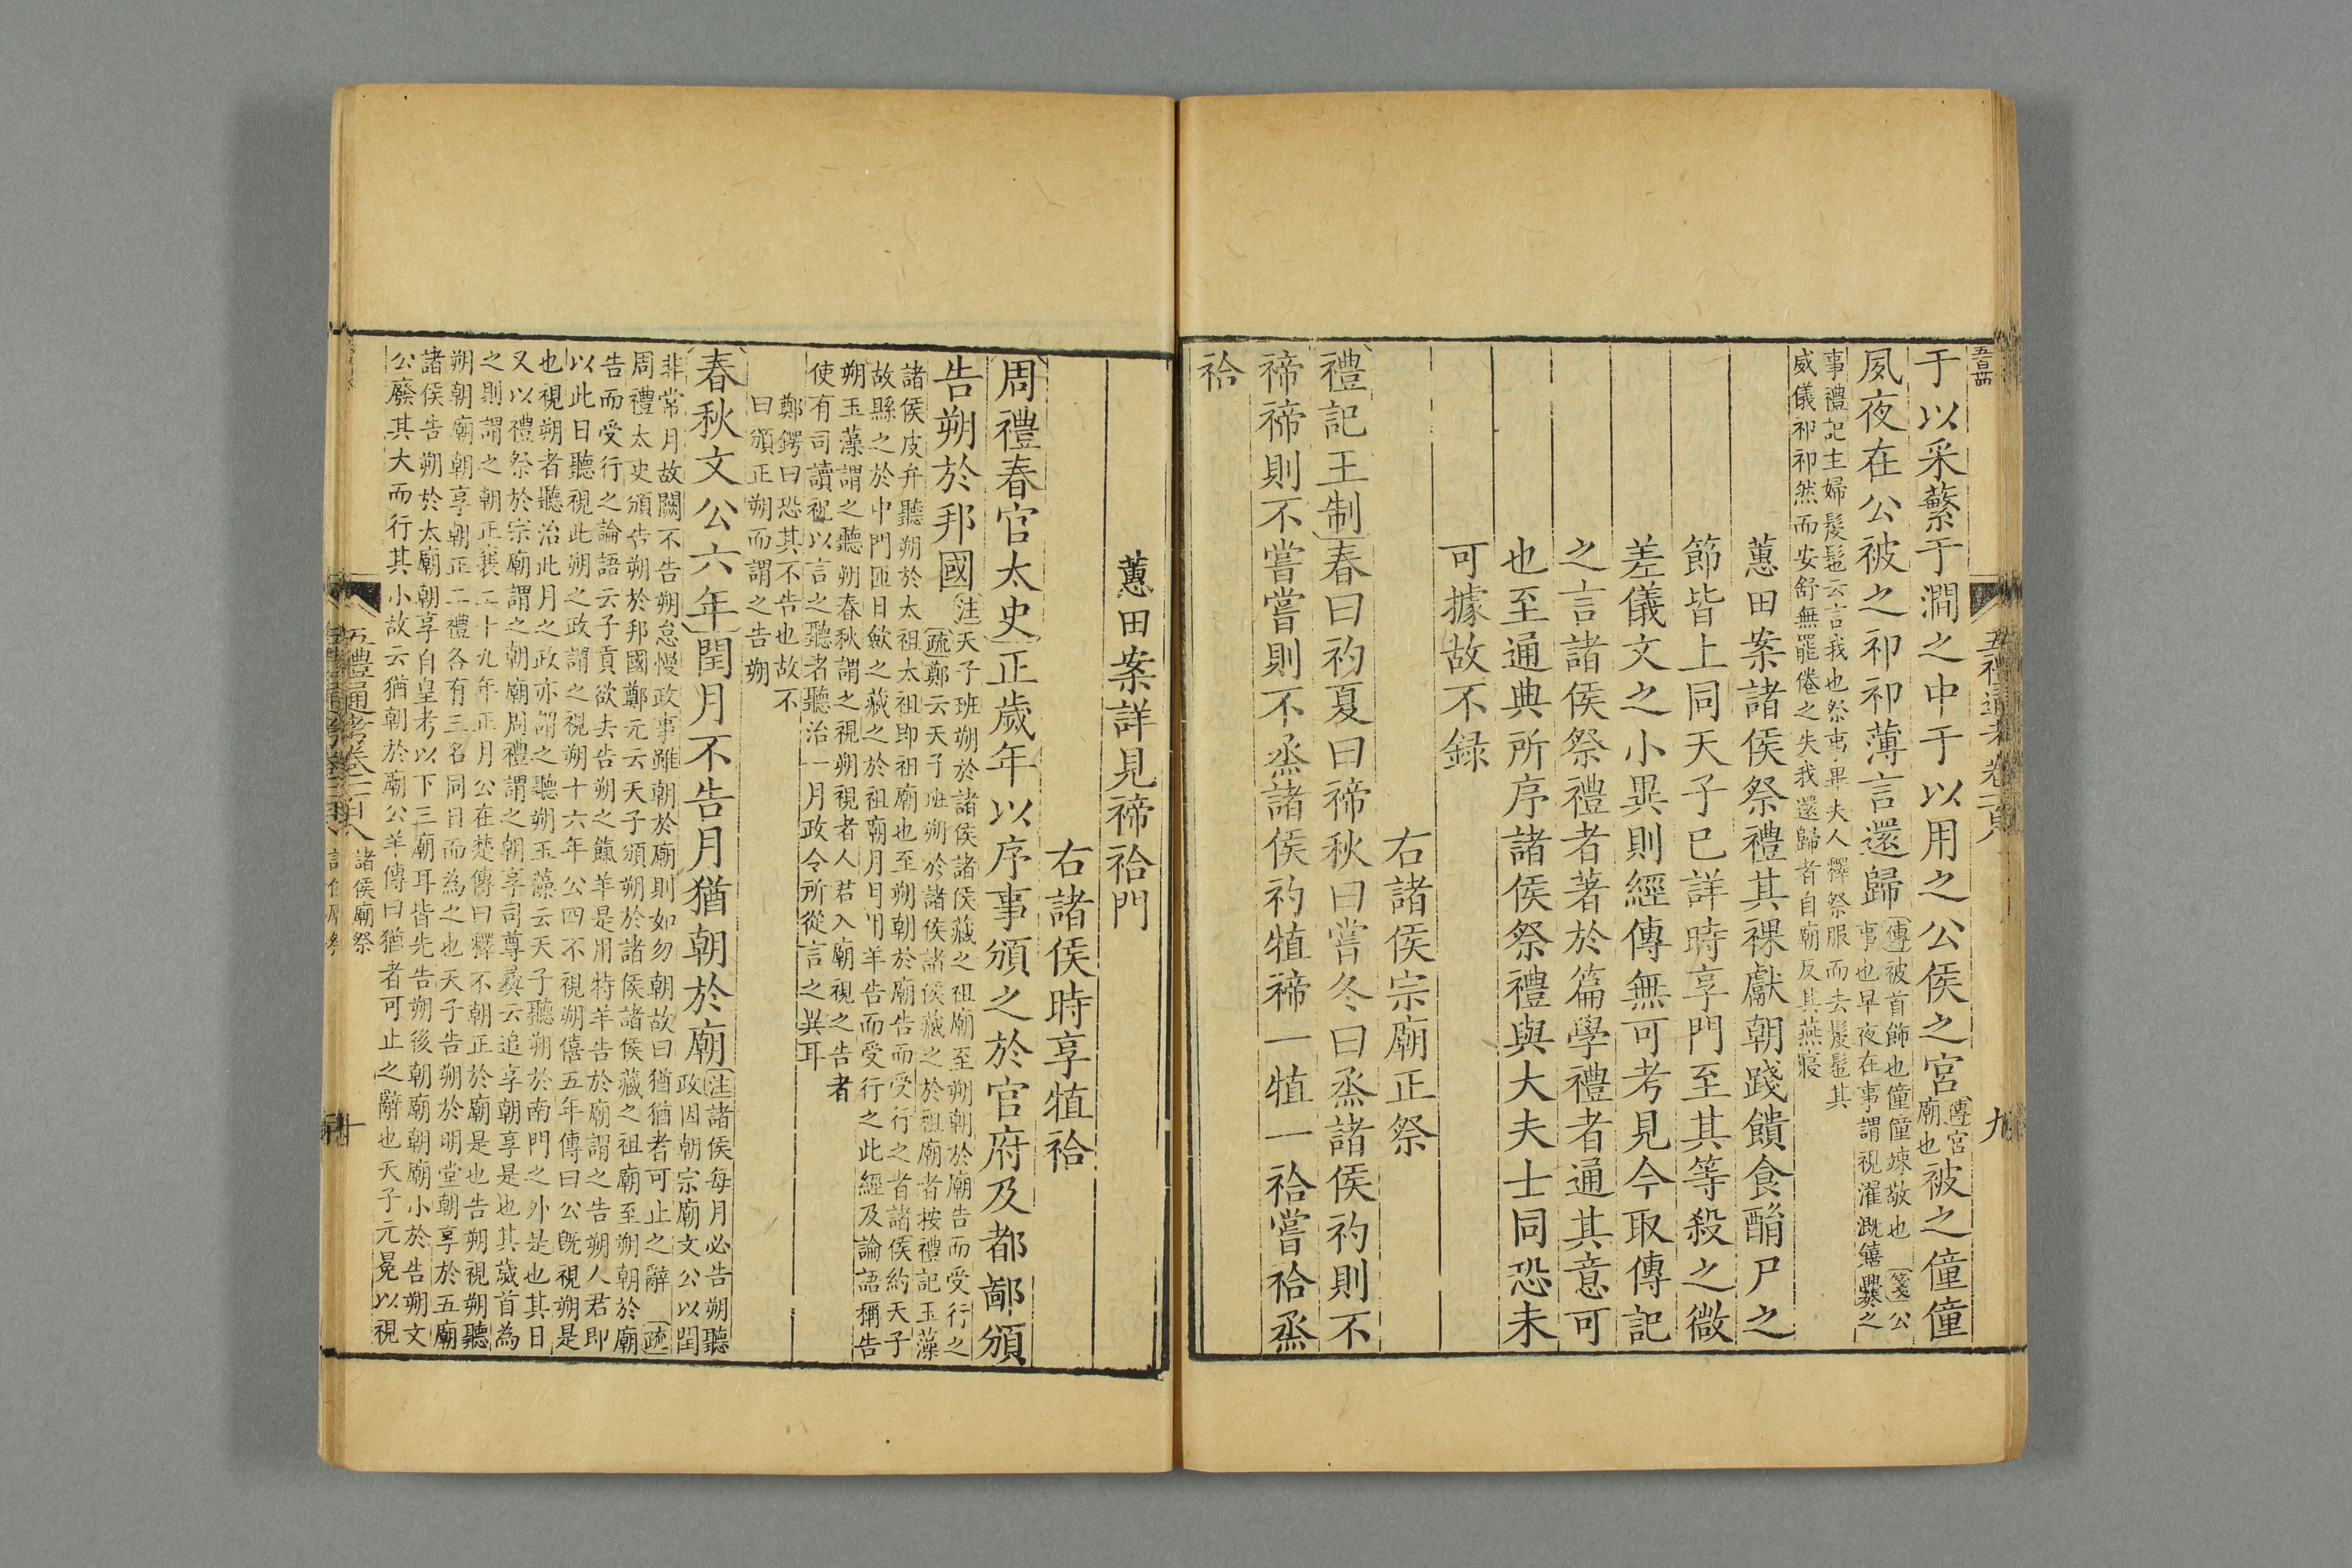 五百十四
五禮通考卷一百八
九
于以采蘩于澗之中于以用之公侯之宮傳宮廟也被之僮僮
夙夜在公被之祁祁薄言還歸傳被首飾也僮僮竦敬也箋公事也早夜在事謂視濯溉饎爨之
事禮記主婦髲髢云言我也祭事畢夫人釋祭服而去髲髢其
威儀祁祁然而安舒無罷倦之失我還歸者自廟反其燕寢
蕙田案諸侯祭禮其祼獻朝踐饋食酳尸之
節皆上同天子已詳時享門至其等殺之微
差儀文之小異則經傳無可考見今取傳記
之言諸侯祭禮者著於篇學禮者通其意可
也至通典所序諸侯祭禮與大夫士同恐未
可據故不録
右諸侯宗廟正祭
禮記王制春曰礿夏曰禘秋曰嘗冬曰烝諸侯礿則不
禘禘則不嘗嘗則不烝諸侯礿犆禘一犆一祫嘗祫烝
祫
蕙田案詳見禘祫門
右諸侯時享犆祫
周禮春官太史正歲年以序事頒之於官府及都鄙頒
告朔於邦國注天子班朔於諸侯諸侯藏之祖廟至朔朝於廟告而受行之疏鄭云天子班朔於諸侯諸侯藏之於祖廟者按禮記玉藻
諸侯皮弁聽朔於太祖太祖即祖廟也至朔朝於廟告而受行之者諸侯約天子
故縣之於中門匝日斂之藏之於祖廟月月用羊告而受行之此經及論語稱告
朔玉藻謂之聽朔春秋謂之視朔視者人君入廟視之告者
使有司讀祝以言之聽者聽治一月政令所從言之異耳
鄭鍔曰恐其不告也故不
曰頒正朔而謂之告朔
春秋文公六年閏月不告月猶朝於廟注諸侯每月必告朔聽政因朝宗廟文公以閏
非常月故闕不告朔怠慢政事雖朝於廟則如勿朝故曰猶猶者可止之辭疏
周禮太史頒告朔於邦國鄭元云天子頒朔於諸侯諸侯藏之祖廟至朔朝於廟
告而受行之論語云子貢欲去告朔之餼羊是用特羊告於廟謂之告朔人君即
以此日聽視此朔之政謂之視朔十六年公四不視朔僖五年傳曰公旣視朔是
也視朔者聽治此月之政亦謂之聽朔玉藻云天子聽朔於南門之外是也其日
又以禮祭於宗廟謂之朝廟周禮謂之朝享司尊彝云追享朝享是也其歲首為
之則謂之朝正襄二十九年正月公在楚傳曰釋不朝正於廟是也告朔視朔聽
朔朝廟朝享朝正二禮各有三名同日而為之也天子告朔於明堂朝享於五廟
諸侯告朔於太廟朝享自皇考以下三廟耳皆先告朔後朝廟朝廟小於告朔文
公廢其大而行其小故云猶朝於廟公羊傳曰猶者可止之辭也天子元冕以視
五禮通考卷一百八
諸侯廟祭
十